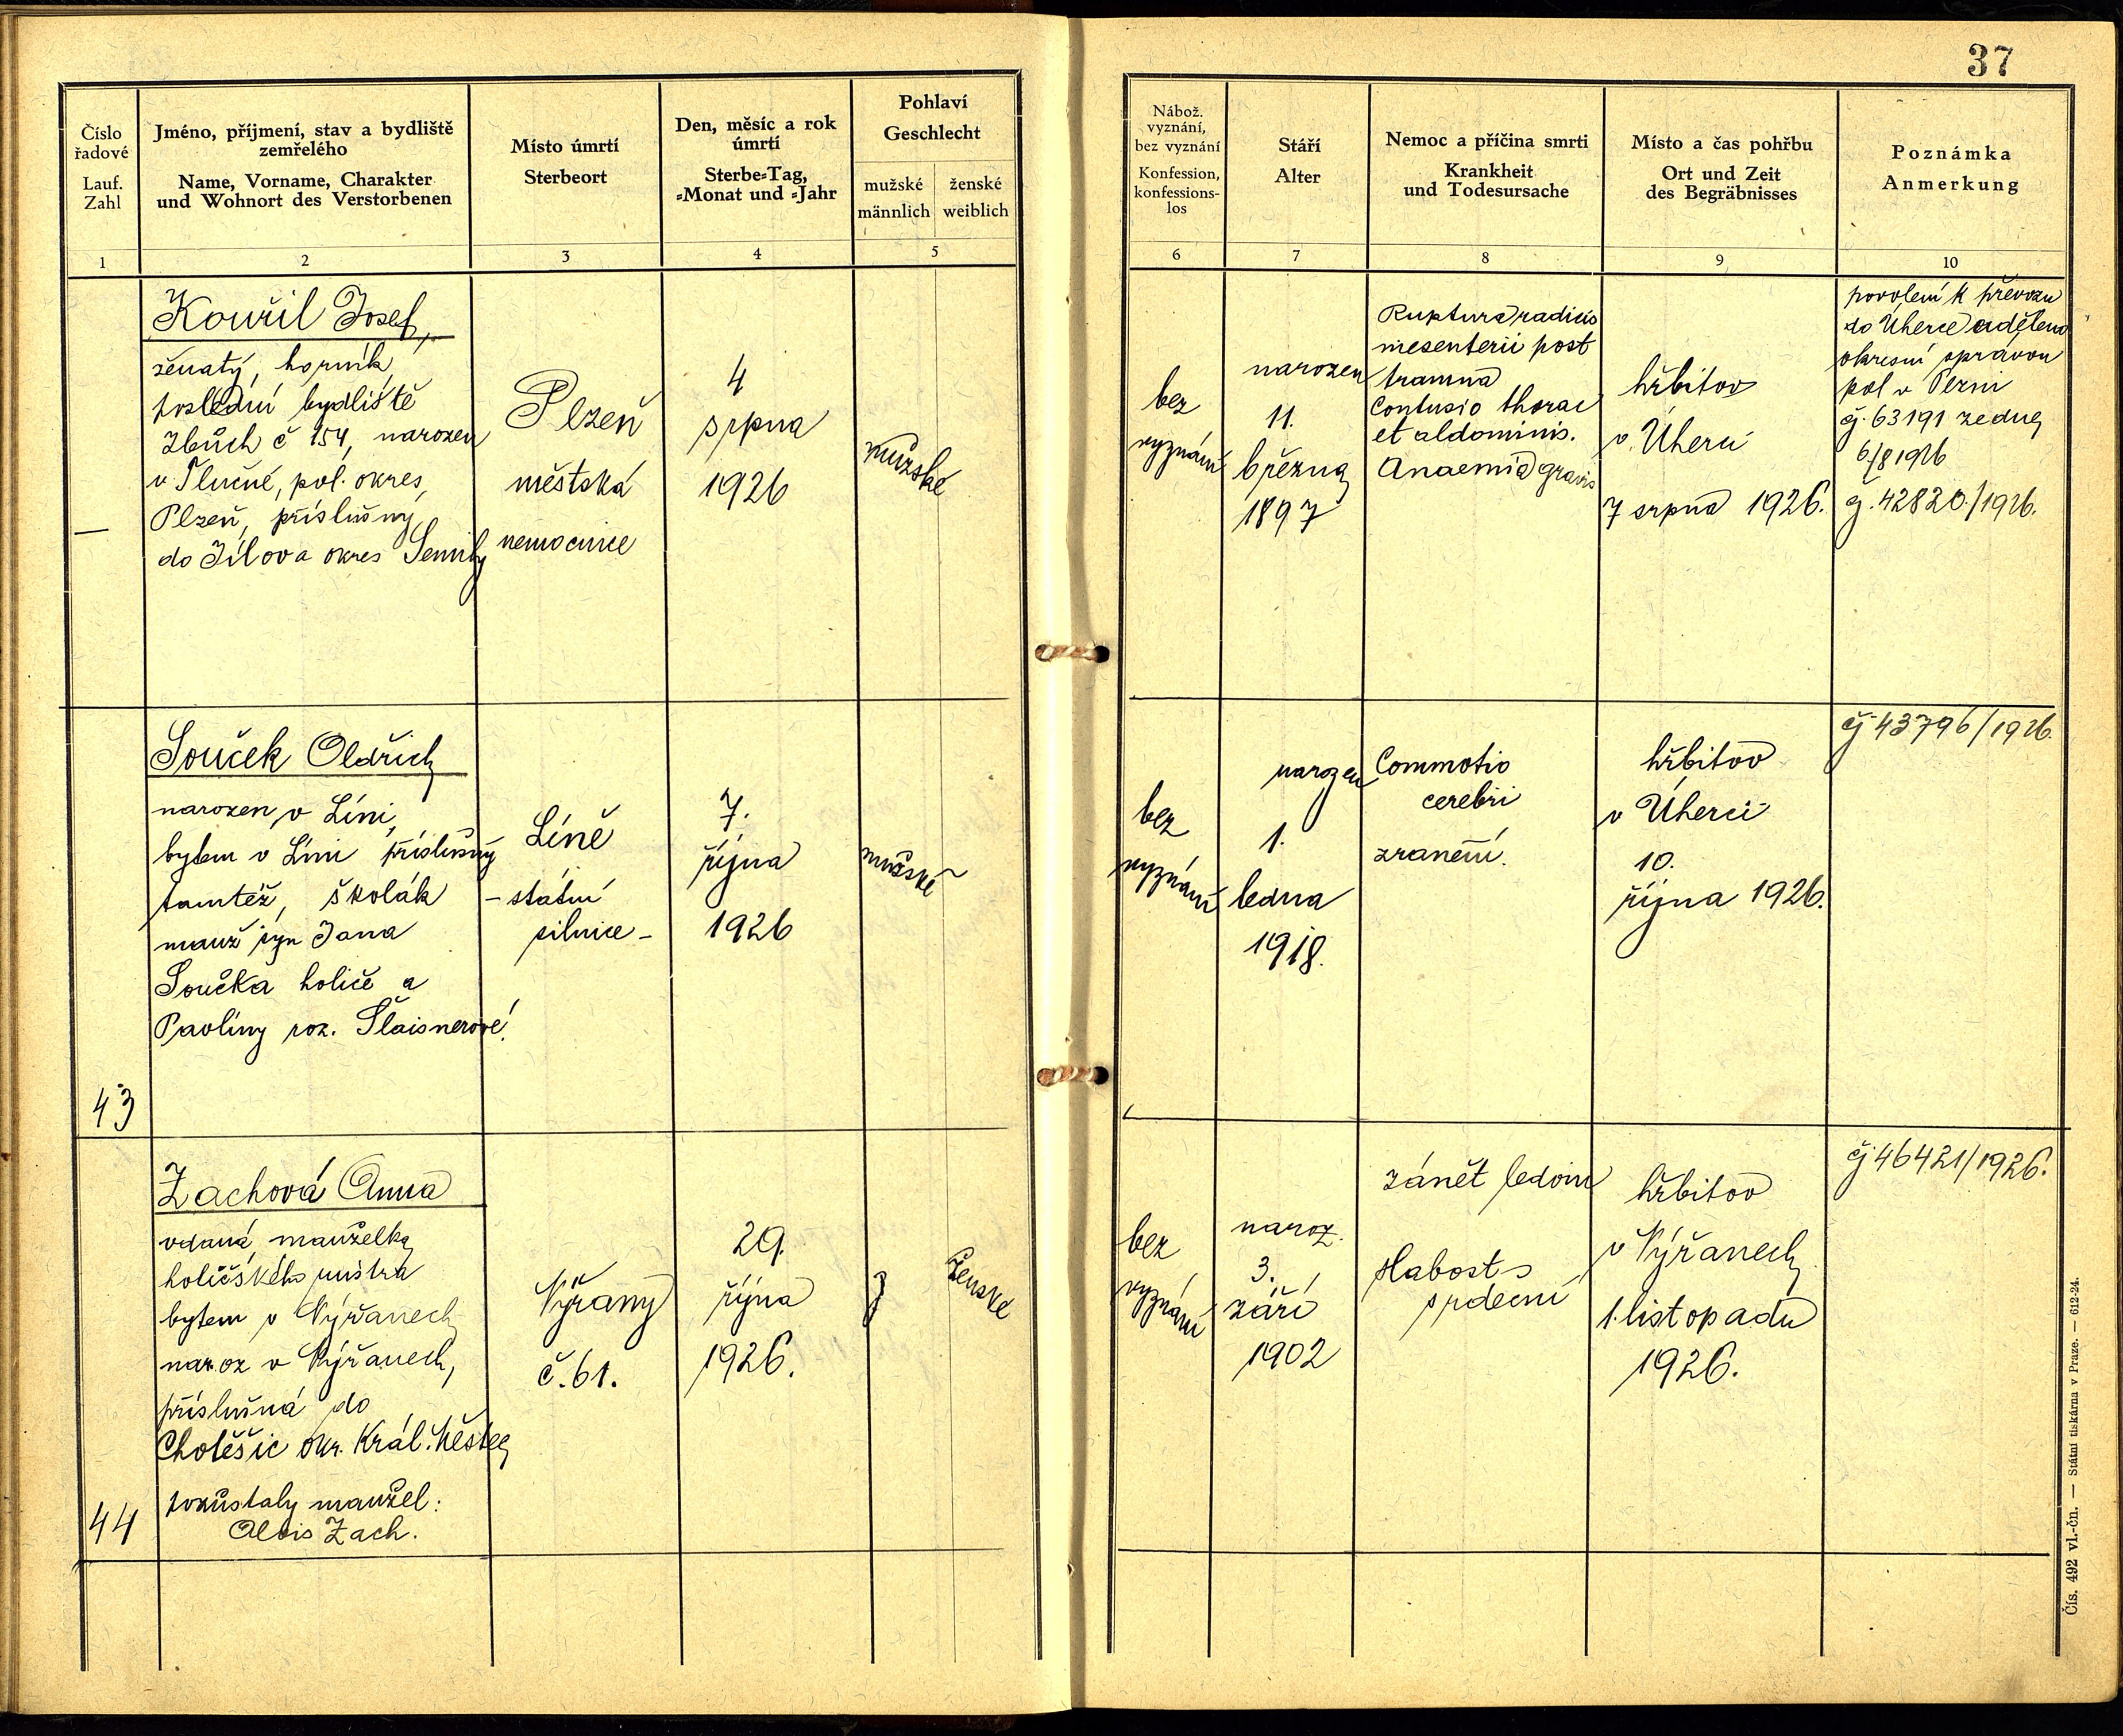 37
Číslo
řadové
Lauf.
Zahl
Jméno, příjmení, stav a bydliště
zemřelého
Name, Vorname, Charakter
und Wohnort des Verstorbenen
Místo úmrtí
Sterbeort
Den, měsíc a rok
úmrtí
Sterbe=Tag,
=Monat und =Jahr
Pohlaví
Geschlecht
mužské
männlich
ženské
weiblich
Nábož.
vyznání,
bez vyznání
Konfession,
konfessions-
los
Stáří
Alter
Nemoc a příčina smrti
Krankheit
und Todesursache
Místo a čas pohřbu
Ort und Zeit
des Begräbnisses
Poznámka
Anmerkung
1
2
3
4
5
6
7
8
9
10
—
Kouřil Josef,
ženatý, horník,
poslední bydliště
Zbůch č 154, narozen
v Tlučné, pol. okres,
Plzeň, príslušný
do Jílova okres Semily
Plzeň
městská
nemocnice
4
srpna
1926
mužské
bez
vyznání
narozen
11.
března
1897
Ruptura radicis
mesenterii post
trauma
Contusio thorac
et abdominis.
Anaemia gravis
hřbitov
v Úherci
7 srpna 1926.
povolení k převozu
do Úherce uděleno
okresní správou
pol v Plzni
čj. 63191 ze dne
6/8 1926
čj. 42820/1926.
43
Souček Oldřich
narozen v Líni,
bytem v Líni příslušný
tamtéž, školák
manž syn Jana
Součka holiče a
Pavlíny roz. Šlaisnerové.
Líně
– státní
silnice –
7.
října
1926
mužské
bez
vyznání
narozen
1.
ledna
1918.
Commotio
cerebri
zranění.
hřbitov
v Úherci
10.
října 1926.
čj 43796/1926.
44
Zachová Anna
vdaná, manželka
holičského mistra
bytem v Nýřanech
naroz v Nýřanech,
příslušná do
Chotěšic okr. Král. Městec
pozůstalý manžel:
Alois Zach.
Nýřany
č. 61.
29.
října
1926.
ženské
bez
vyznání
naroz.
3.
září
1902
zánět ledvin
slabost
srdeční
hřbitov
v Nýřanech
1. listopadu
1926.
čj 46421/1926.
Čís. 492 vl.-čn. — Státní tiskárna v Praze. — 612-24.